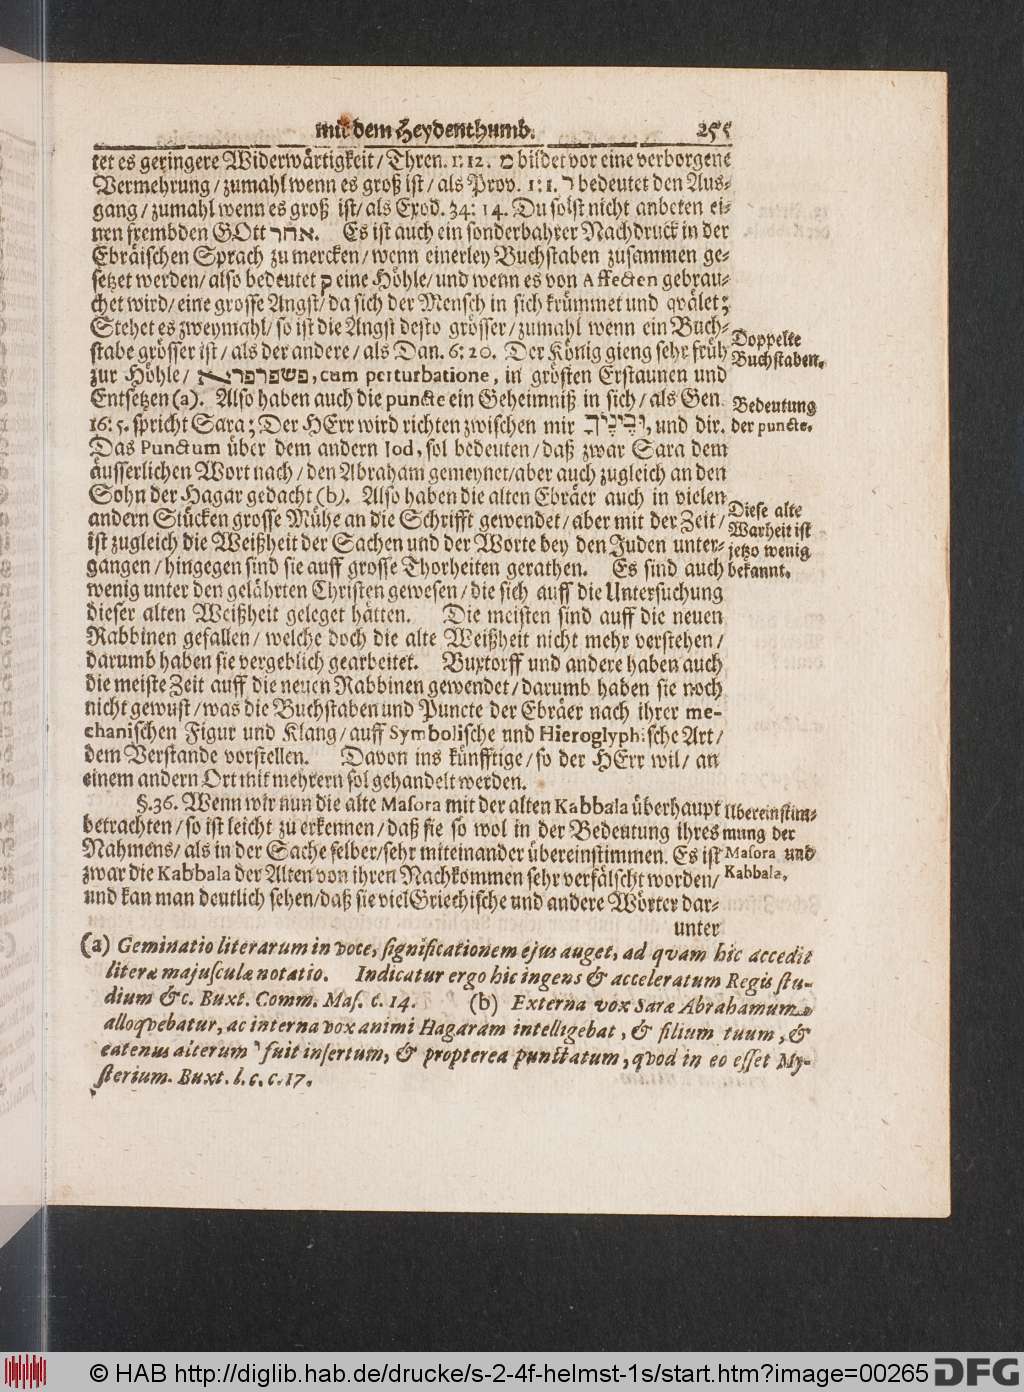 mit dem Heydenthumb. 255
tet es geringere Widerwärtigkeit/ Thren. 1: 12. מ bildet vor eine verborgene
Vermehrung/ zumahl wenn es groß ist/ als Prov. 1: 1. ר bedeutet den Aus-
gang/ zumahl wenn es groß ist/ als Exod. 34: 14. Du solst nicht anbeten ei-
nen frembden GOtt אחר. Es ist auch ein sonderbahrer Nachdruck in der
Ebräischen Sprach zu mercken/ wenn einerley Buchstaben zusammen ge-
setzet werden/ also bedeutet פ eine Höhle/ und wenn es von Affecten gebrau-
chet wird/ eine grosse Angst/ da sich der Mensch in sich krümmet und qvälet;
Stehet es zweymahl/ so ist die Angst desto grösser/ zumahl wenn ein Buch-
stabe grösser ist/ als der andere/ als Dan. 6: 20. Der König gieng sehr früh
Doppelte
Buchstaben.
zur Höhle/ פשפרפריא, cum perturbatione, in grösten Erstaunen und
Entsetzen (a). Also haben auch die puncte ein Geheimniß in sich/ als Gen.
16: 5. spricht Sara; Der HErr wird richten zwischen mir וּבֵינֶיךָ, und dir.
Bedeutung
der puncte.
Das Punctum über dem andern Iod, sol bedeuten/ daß zwar Sara dem
äusserlichen Wort nach/ den Abraham gemeynet/ aber auch zugleich an den
Sohn der Hagar gedacht (b). Also haben die alten Ebräer auch in vielen
andern Stücken grosse Mühe an die Schrifft gewendet/ aber mit der Zeit/
ist zugleich die Weißheit der Sachen und der Worte bey den Juden unter-
gangen/ hingegen sind sie auff grosse Thorheiten gerathen. Es sind auch
Diese alte
Warheit ist
jetzo wenig
bekannt.
wenig unter den gelährten Christen gewesen/ die sich auff die Untersuchung
dieser alten Weißheit geleget hätten. Die meisten sind auff die neuen
Rabbinen gefallen/ welche doch die alte Weißheit nicht mehr verstehen/
darumb haben sie vergeblich gearbeitet. Buxtorff und andere haben auch
die meiste Zeit auff die neuen Rabbinen gewendet/ darumb haben sie noch
nicht gewust/ was die Buchstaben und Puncte der Ebräer nach ihrer me-
chanischen Figur und Klang/ auff Symbolische und Hieroglyphische Art/
dem Verstande vorstellen. Davon ins künfftige/ so der HErr wil/ an
einem andern Ort mit mehrern sol gehandelt werden.
§. 36. Wenn wir nun die alte Masora mit der alten Kabbala überhaupt
betrachten/ so ist leicht zu erkennen/ daß sie so wol in der Bedeutung ihres
Nahmens/ als in der Sache selber/ sehr miteinander übereinstimmen. Es ist
zwar die Kabbala der Alten von ihren Nachkommen sehr verfälscht worden/
Ubereinstim-
mung der
Masora und
Kabbala.
und kan man deutlich sehen/ daß sie viel Griechische und andere Wörter dar-
unter
(a) Geminatio literarum in voce, significationem ejus auget, ad qvam hic accedit
literæ majusculæ notatio. Indicatur ergo hic ingens & acceleratum Regis stu-
dium &c. Buxt. Comm. Mas. c. 14. (b) Externa vox Saræ Abrahamum
alloqvebatur, ac interna vox animi Hagaram intelligebat, & filium tuum, &
eatenus alterum י fuit insertum, & propterea punctatum, qvod in eo esset My-
sterium. Buxt. l. c. c. 17.
© HAB http://diglib.hab.de/drucke/s-2-4f-helmst-1s/start.htm?image=00265
DFG